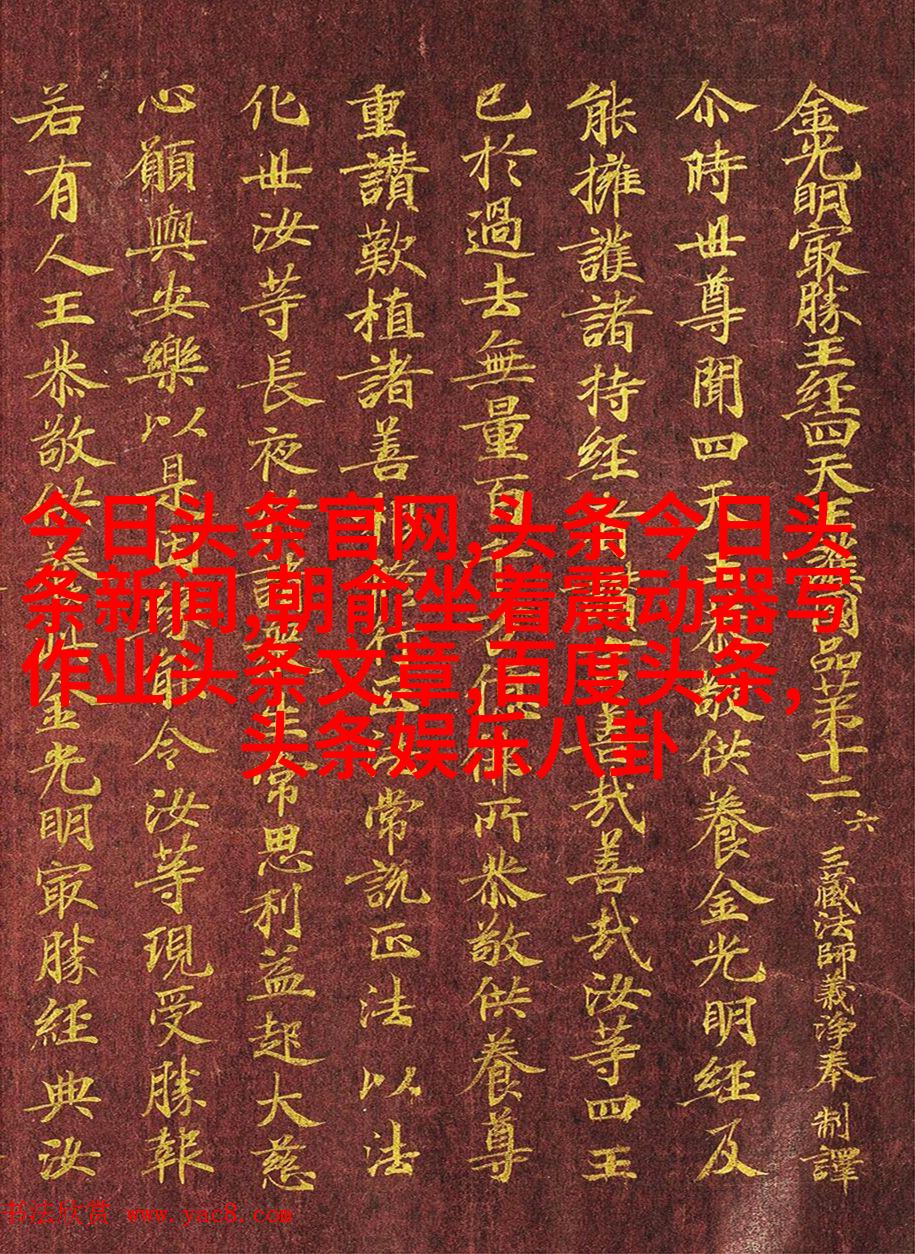 金光明冣勝王経四天王國品苐十二 六 三藏法師義淨奉 制譯
尒時世尊聞四天王恭敬供養金光明経及
能擁護諸持経善哉善哉汝等四王
已於過去無量百佛所恭敬供養尊
重讚歎植諸善常說正法以法
化世汝等長夜常思利益起大慈
心願與安樂以是因令汝等現受勝報
若有人王恭敬供養金光明冣勝経典汝
今日头条官网,头条今日头
条新闻,朝俞坐着震动器写
作业头条文章,百度头条,
头条娱乐八卦
书法欣赏 www.yac8.com